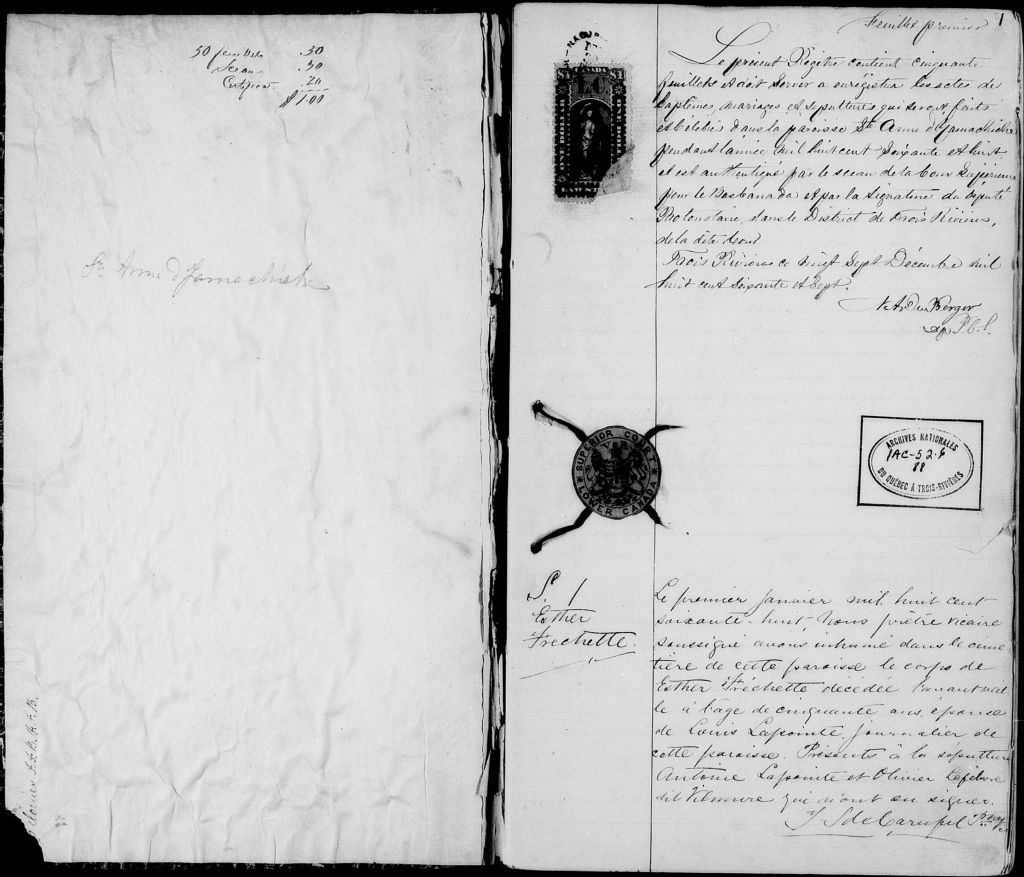 50 feuillets .50
Sceau .30
Certificat .20
$1.00
Ste Anne d'Yamachiche
Feuillet premier
1
Le présent Régitre contient cinquante
feuillets et doit servir a enrégistrer les actes de
Baptêmes, mariages et sepultures qui seront faits
et Célébrés dans la paroisse Ste Anne d'Yamachiche
pendant l'année mil huit cent Soixante et huit
et est authentiqué par le sceau de la Cour Supérieure
pour le Bas Canada et par la Signature du Député
Protonotaire, dans le District de Trois Rivières,
de la dite Cour
Trois Rivières ce vingt Sept Décembre mil
huit cent soixante et Sept.
Du Berger
P.C.S.
CANADA
$1 L.C. $1
ONE DOLLAR
ONE DOLLAR
LAW ST
SUPERIOR COURT
LOWER CANADA
ARCHIVES NATIONALES
1AC-52.6
88
DU QUÉBEC À TROIS-RIVIÈRES
S. 1
Esther
Fréchette.
Le premier janvier mil huit cent
soixante-huit, Nous prêtre vicaire
soussigné avons inhumé dans le cime-
tière de cette paroisse le corps de
Esther Fréchette décédée l'avant veil
le à l'age de cinquante ans, épouse
de Louis Lapointe, journalier de
cette paroisse. Présents à la sépulture
Antoine Lapointe et Olivier Lefebvre
dit Vilmure qui n'ont su signer.
de Carufel Ptre